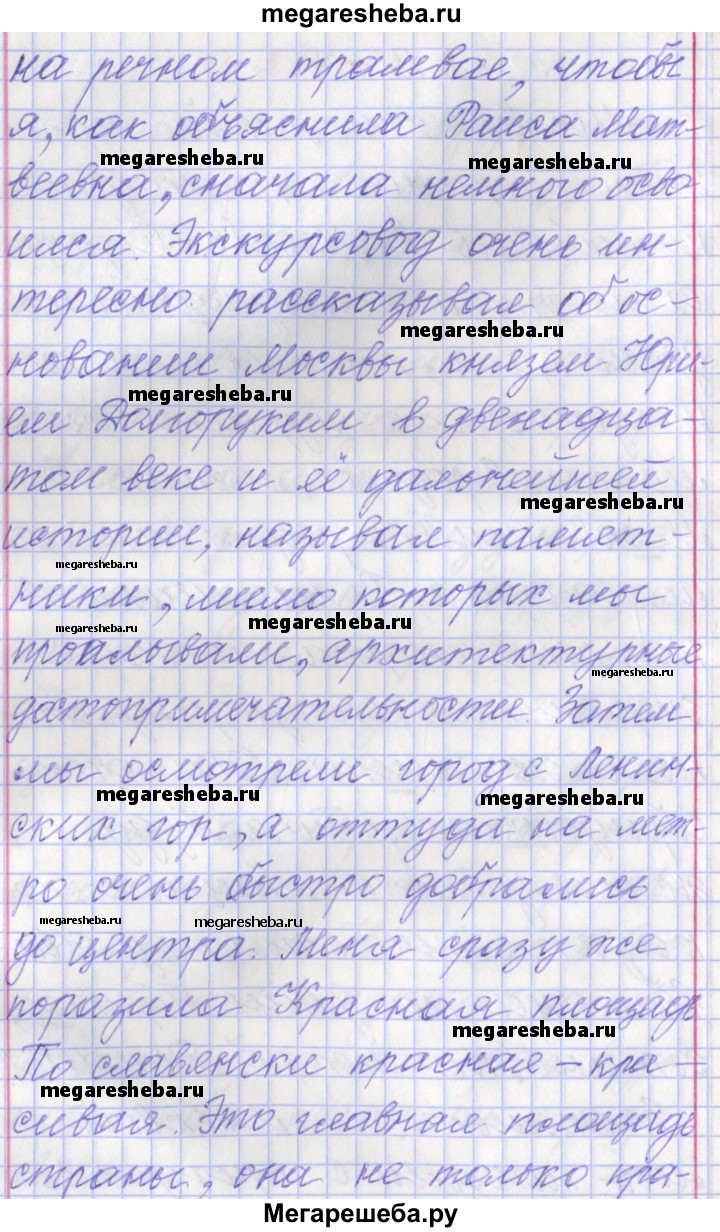 megaresheba.ru
на речном трамвае, чтобы
я, как объяснила Раиса Мат-
megaresheba.ru megaresheba.ru
веевна, сначала немного осво
ился. Экскурсовод очень ин-
тересно рассказывал об ос-
megaresheba.ru
новании Москвы князем Юри-
megaresheba.ru
ем Долгоруким в двенадца-
том веке и её дальнейшей
megaresheba.ru
истории, называл памят-
megaresheba.ru
ники, мимо которых мы
megaresheba.ru megaresheba.ru
проплывали, архитектурные
megaresheba.ru
достопримечательности. Затем
мы осмотрели город с Ленин-
megaresheba.ru megaresheba.ru
ских гор, а оттуда на мет-
ро очень быстро добрались
megaresheba.ru megaresheba.ru
до центра. Меня сразу же
поразила Красная площадь
megaresheba.ru
По славянски красная – кра-
megaresheba.ru
сивая. Это главная площадь
страны, она не только кра-
Мегарешеба.ру